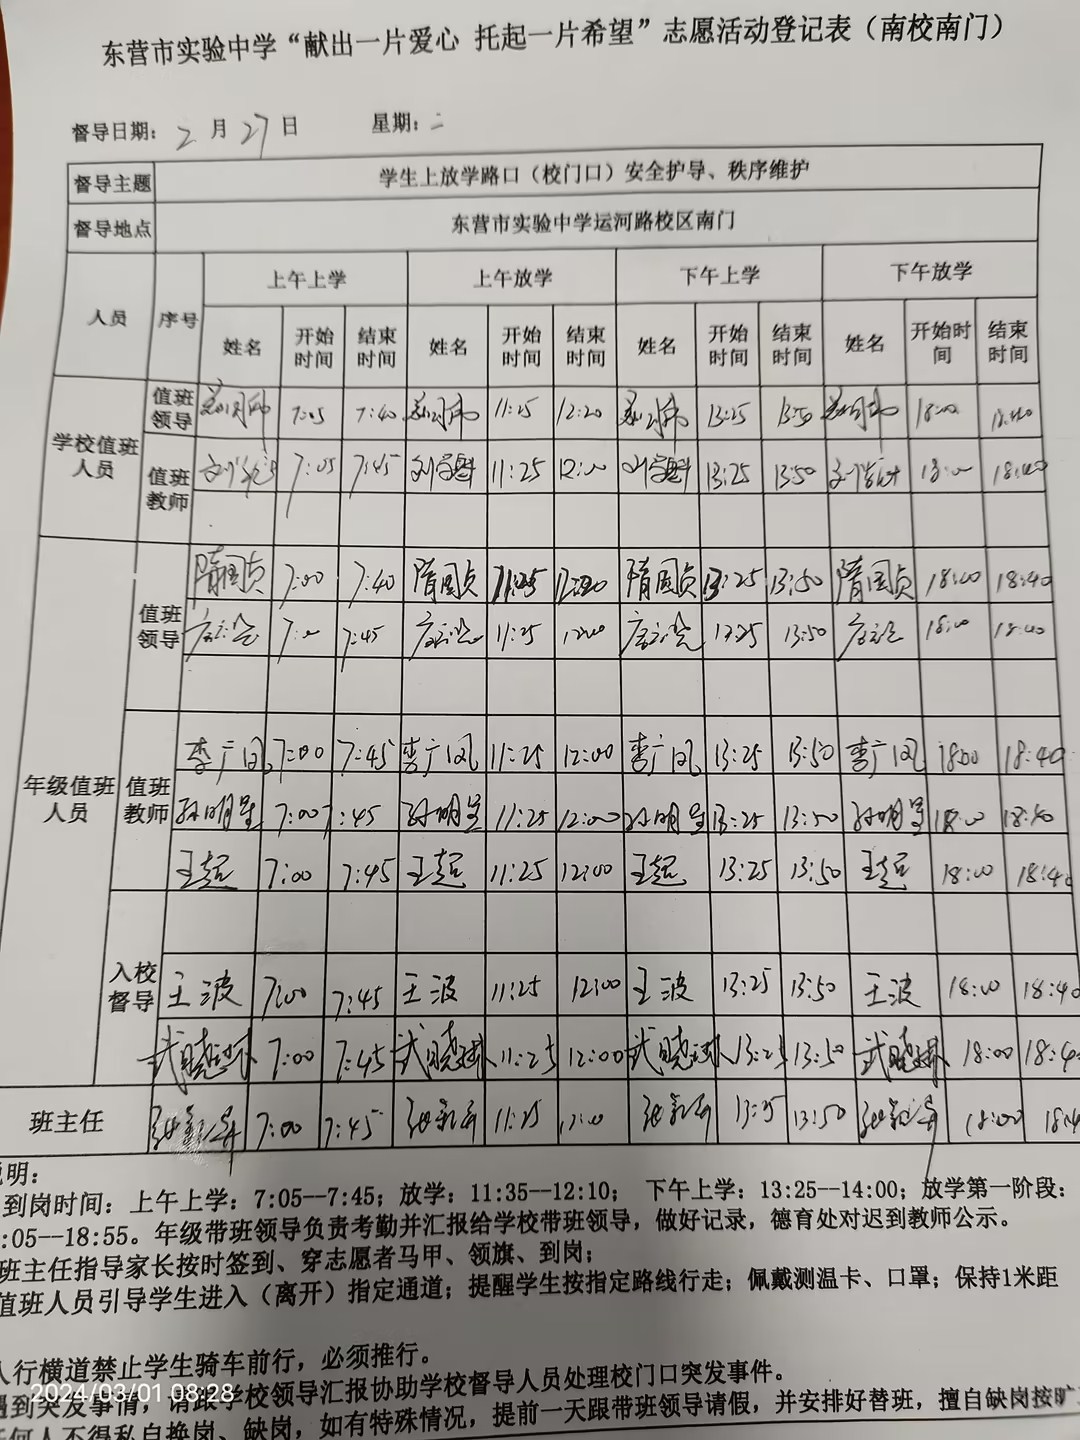 东营市实验中学“献出一片爱心 托起一片希望”志愿活动登记表（南校南门）
督导日期: 2 月 27 日 星期: 二
督导主题 学生上放学路口（校门口）安全护导、秩序维护
督导地点 东营市实验中学运河路校区南门
人员 序号 上午上学 上午放学 下午上学 下午放学
姓名 开始时间 结束时间 姓名 开始时间 结束时间 姓名 开始时间 结束时间 姓名 开始时间 结束时间
学校值班人员
值班领导 7:05 7:40 11:25 12:20 13:25 13:50 18:00
值班教师 7:05 7:45 11:25 12:00 13:25 13:50 18:00 18:40
年级值班人员
值班领导 隋国贞 7:00 7:40 隋国贞 11:25 隋国贞 13:25 13:50 隋国贞 18:00 18:40
7:00 7:45 11:25 12:00 13:25 13:50 18:00 18:40
值班教师 李广凤 7:00 7:45 李广凤 11:25 12:00 李广凤 13:25 13:50 李广凤 18:00 18:40
孙明星 7:00 7:45 孙明星 11:25 12:00 孙明星 13:25 13:50 孙明星 18:00 18:40
王超 7:00 7:45 王超 11:25 12:00 王超 13:25 13:50 王超 18:00 18:40
入校督导
王波 7:00 7:45 王波 11:25 12:00 王波 13:25 13:50 王波 18:00 18:40
武晓琳 7:00 7:45 武晓琳 11:25 12:00 武晓琳 13:25 13:50 武晓琳 18:00 18:4
班主任 7:00 7:45 11:25 12:00 13:25 13:50 18:00 18:4
说明:
到岗时间: 上午上学: 7:05--7:45; 放学: 11:35--12:10; 下午上学: 13:25--14:00; 放学第一阶段:
:05--18:55。年级带班领导负责考勤并汇报给学校带班领导，做好记录，德育处对迟到教师公示。
班主任指导家长按时签到、穿志愿者马甲、领旗、到岗;
值班人员引导学生进入（离开）指定通道; 提醒学生按指定路线行走; 佩戴测温卡、口罩; 保持1米距
人行横道禁止学生骑车前行，必须推行。
遇到突发事情，请跟学校领导汇报协助学校督导人员处理校门口突发事件。
任何人不得私自换岗、缺岗，如有特殊情况，提前一天跟带班领导请假，并安排好替班，擅自缺岗按旷
2024/03/01 08:28